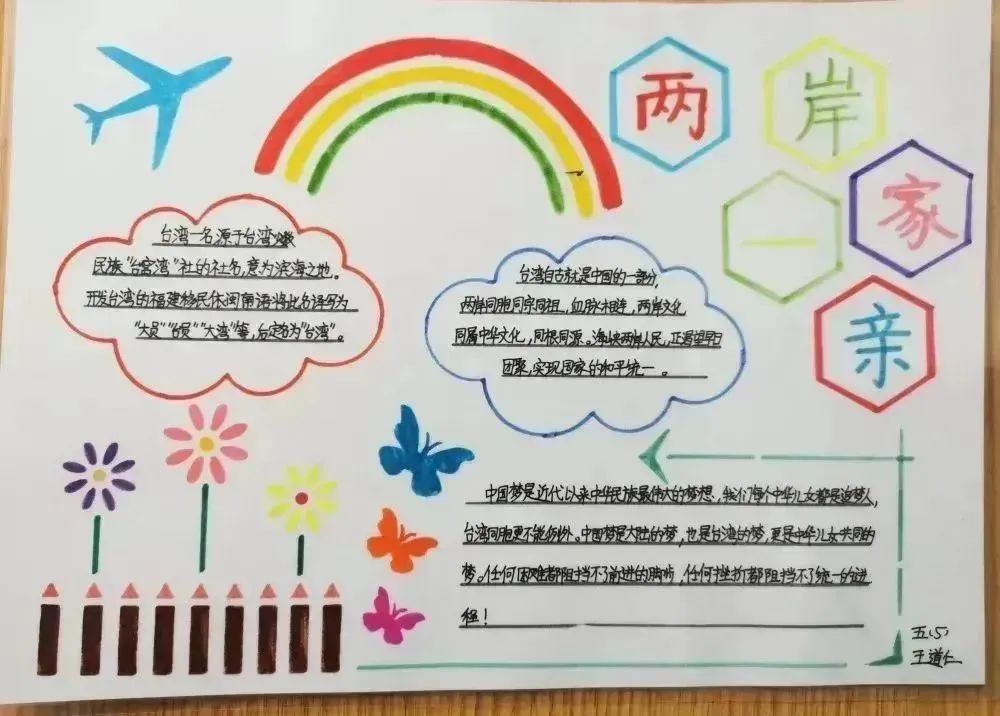 两岸一家亲
台湾一名源于台湾
民族"台窝湾"社的社名,意为滨海之地。
开发台湾的福建移民依闽南语将此名译写为
"大员""台员""大湾"等,后定名为"台湾"。
台湾自古就是中国的一部分,
两岸同胞同宗同祖,血脉相连,两岸文化
同属中华文化,同根同源。海峡两岸人民,正渴望早日
团聚,实现国家的和平统一。
中国梦是近代以来中华民族最伟大的梦想,我们每个中华儿女都是追梦人,
台湾同胞更不能例外。中国梦是大陆的梦,也是台湾的梦,更是中华儿女共同的
梦。任何困难都阻挡不了前进的脚步,任何挫折都阻挡不了统一的进
程!
五(5)
王道仁